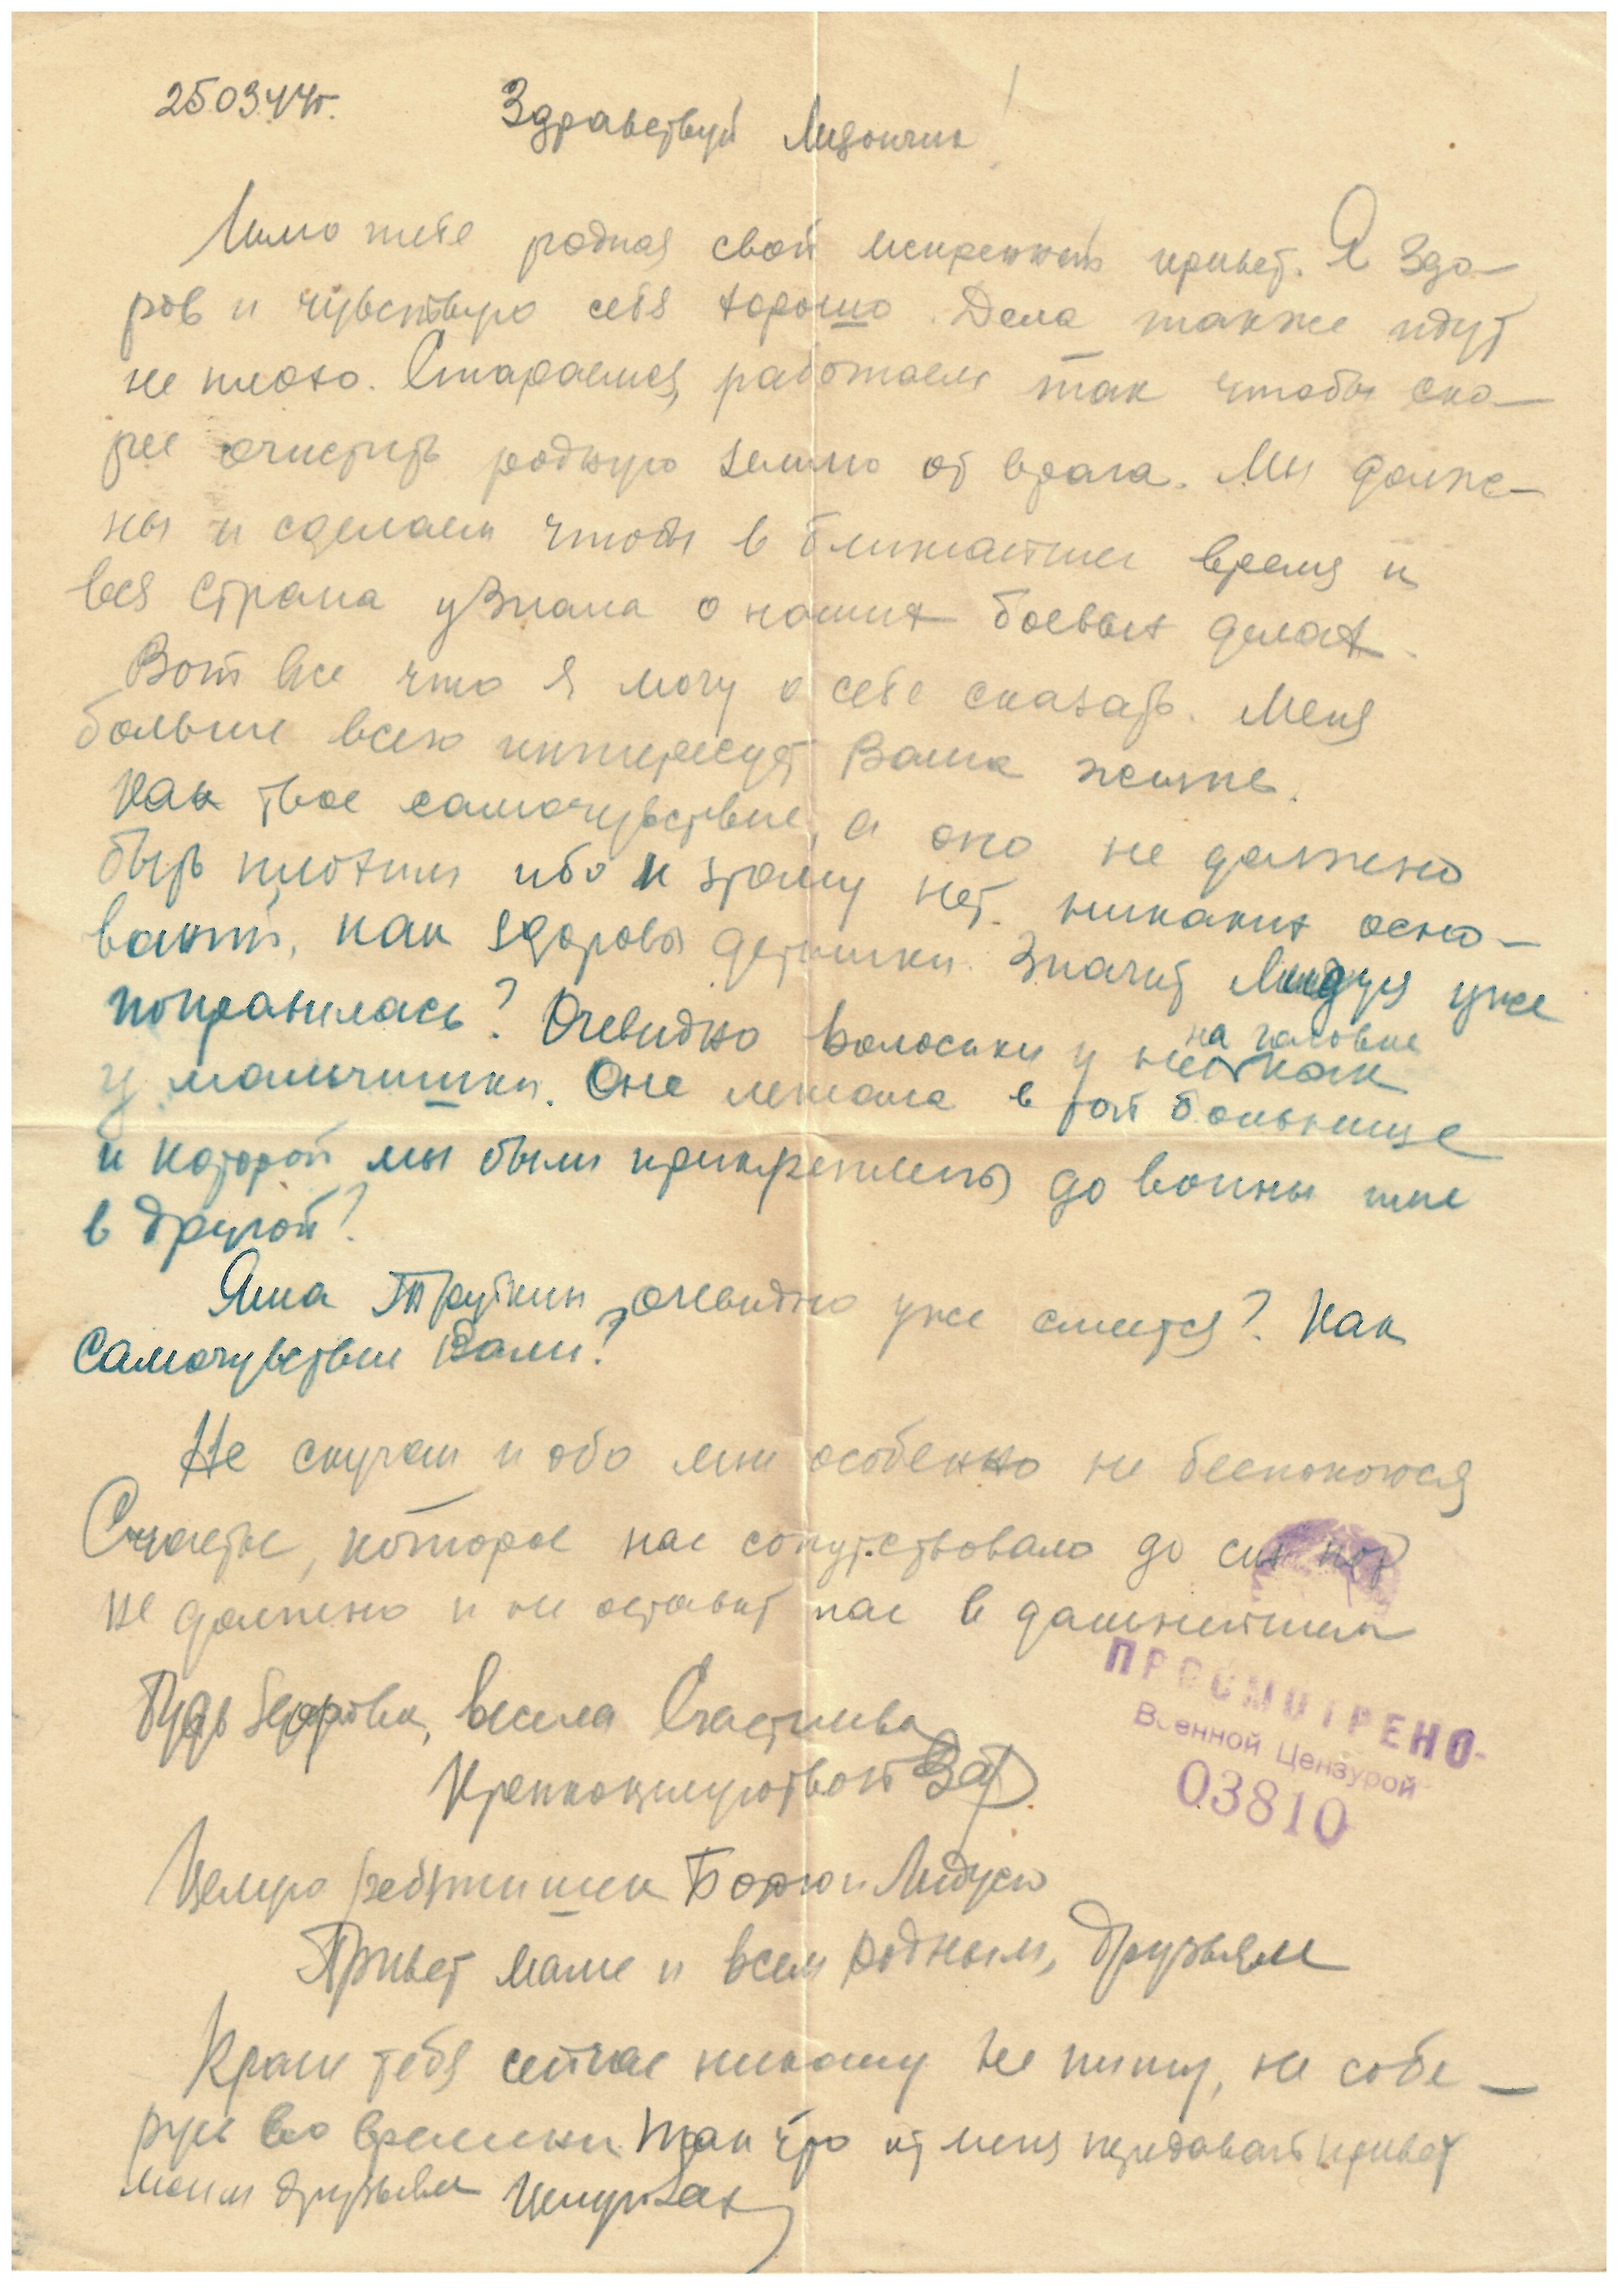 250344г. Здравствуй Лидончик!
Шлю тебе родная свой искренний привет. Я здо-
ров и чувствую себя хорошо. Дела также идут
не плохо. Стараемся, работаем так чтобы ско-
рее очистить родную землю от врага. Мы долж-
ны и сделаем чтобы в ближайшее время и
вся страна узнала о наших боевых делах.
Вот все что я могу о себе сказать. Меня
больше всего интересует Ваша жизнь.
Как твое самочувствие, а оно не должно
быть плохим ибо к этому нет никаких осно-
ваний, как здоровы детишки. Значит Лидуся уже
поправилась? Очевидно волосики у неё на головке как
у мальчишки. Она лежала в той больнице
к которой мы были прикреплены до войны или
в другой?
Яша очевидно уже смеется? Как
самочувствие Вали?
Не скучай и обо мне особенно не беспокойся
Счастье, которое нас сопутствовало до сих пор
не должно и не оставит нас в дальнейшем
Будь здорова, весела Счастлива
Крепкоцелующий Зах
ПРОСМОТРЕНО
Военной Цензурой
03810
Целую ребятишек Борю и Лидусю
Привет маме и всем родным, друзьям
Кроме тебя сейчас никому не пишу, не собе-
русь со временем так что от меня передавай привет
моим друзьям Целую Зах